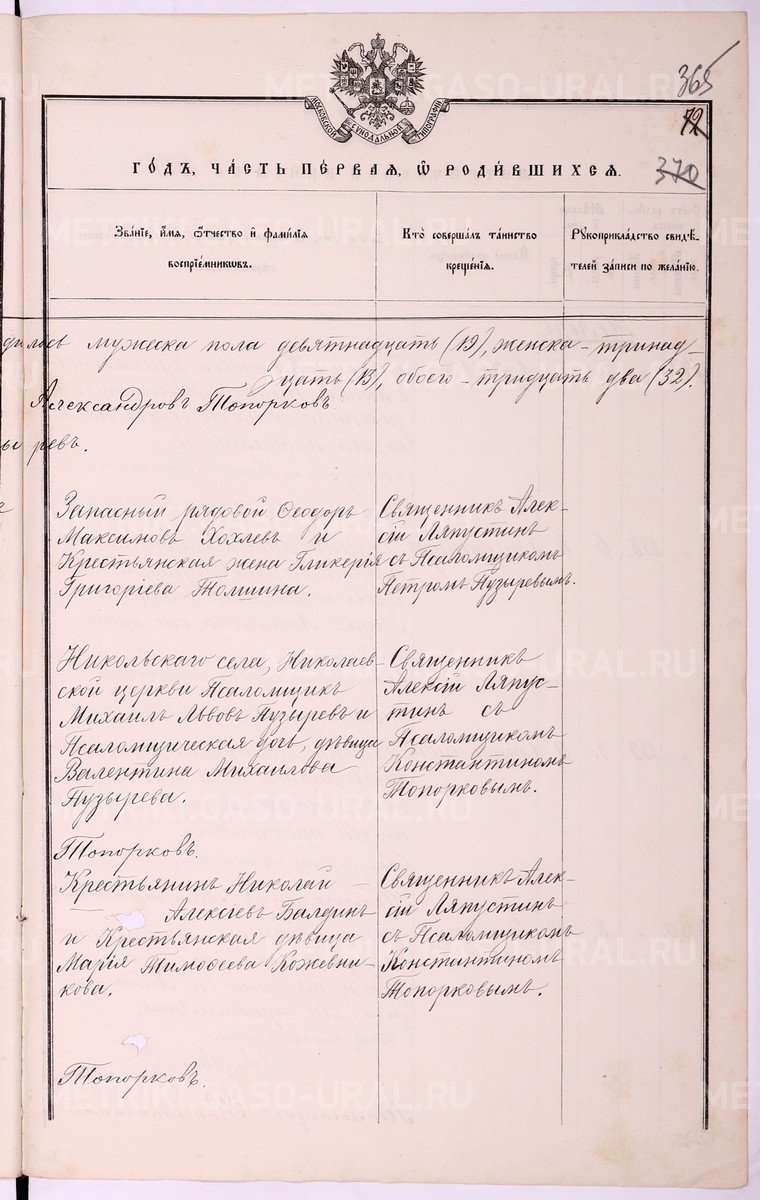 365
72
370
МОСКОВСКОЙ СѴНОДАЛЬНОЙ ТИПОГРАФІИ
ГО́ДЪ, ЧА́СТЬ ПЕ́РВАЯ, Ѡ҆ РОДИ́ВШИХСЯ.
Зва́нїе, и҆́мя, ѻ҆́тчество и҆ фами́лїя
воспрїе́мникωвъ.
Кто̀ соверша́лъ та́инство
креще́нїя.
Рꙋкоприкла́дство свидѣ́-
телей за́писи по жела́нїю.
дилось мужеска пола девятнадцать (19), женска - тринад-
цать (13), обоего - тридцать два (32).
Александровъ Топорковъ.
ыревъ.
Запасный рядовой Ѳеодоръ
Максимовъ Хохлевъ и
Крестьянская жена Гликерія
Григоріева Томшина.
Священникъ Алек-
сій Ляпустинъ
съ Псаломщикомъ
Петромъ Пузыревымъ.
Никольскаго села, Николаев-
ской церкви Псаломщикъ
Михаилъ Львовъ Пузыревъ и
Псаломщическая дочь, дѣвица
Валентина Михаилова
Пузырева.
Священникъ
Алексій Ляпус-
тинъ съ
Псаломщикомъ
Константиномъ
Топорковымъ.
Топорковъ.
Крестьянинъ Николай -
- Алексѣевъ Балдинъ
и Крестьянская дѣвица
Марія Тимоѳеева Кожевни-
кова.
Священникъ Алек-
сій Ляпустинъ
съ Псаломщикомъ
Константиномъ
Топорковымъ.
Топорковъ.
METRIKI.GASO-URAL.RU